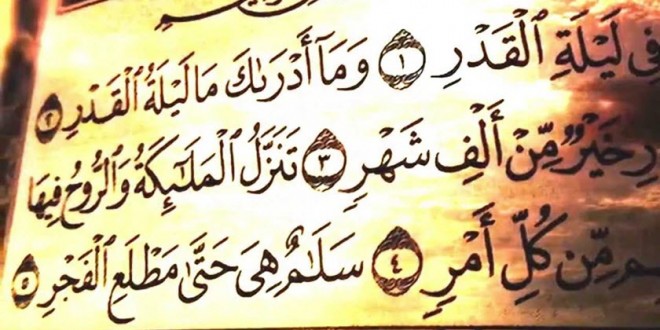 فِي لَيْلَةِ ٱلْقَدْرِ ١ وَمَآ أَدْرَىٰكَ مَا لَيْلَةُ ٱلْقَدْرِ ٢
خَيْرٌ مِّنْ أَلْفِ شَهْرٍ ٣ تَنَزَّلُ ٱلْمَلَٰٓئِكَةُ وَٱلرُّوحُ فِيهَا
مِّن كُلِّ أَمْرٍ ٤ سَلَٰمٌ هِىَ حَتَّىٰ مَطْلَعِ ٱلْفَجْرِ ٥